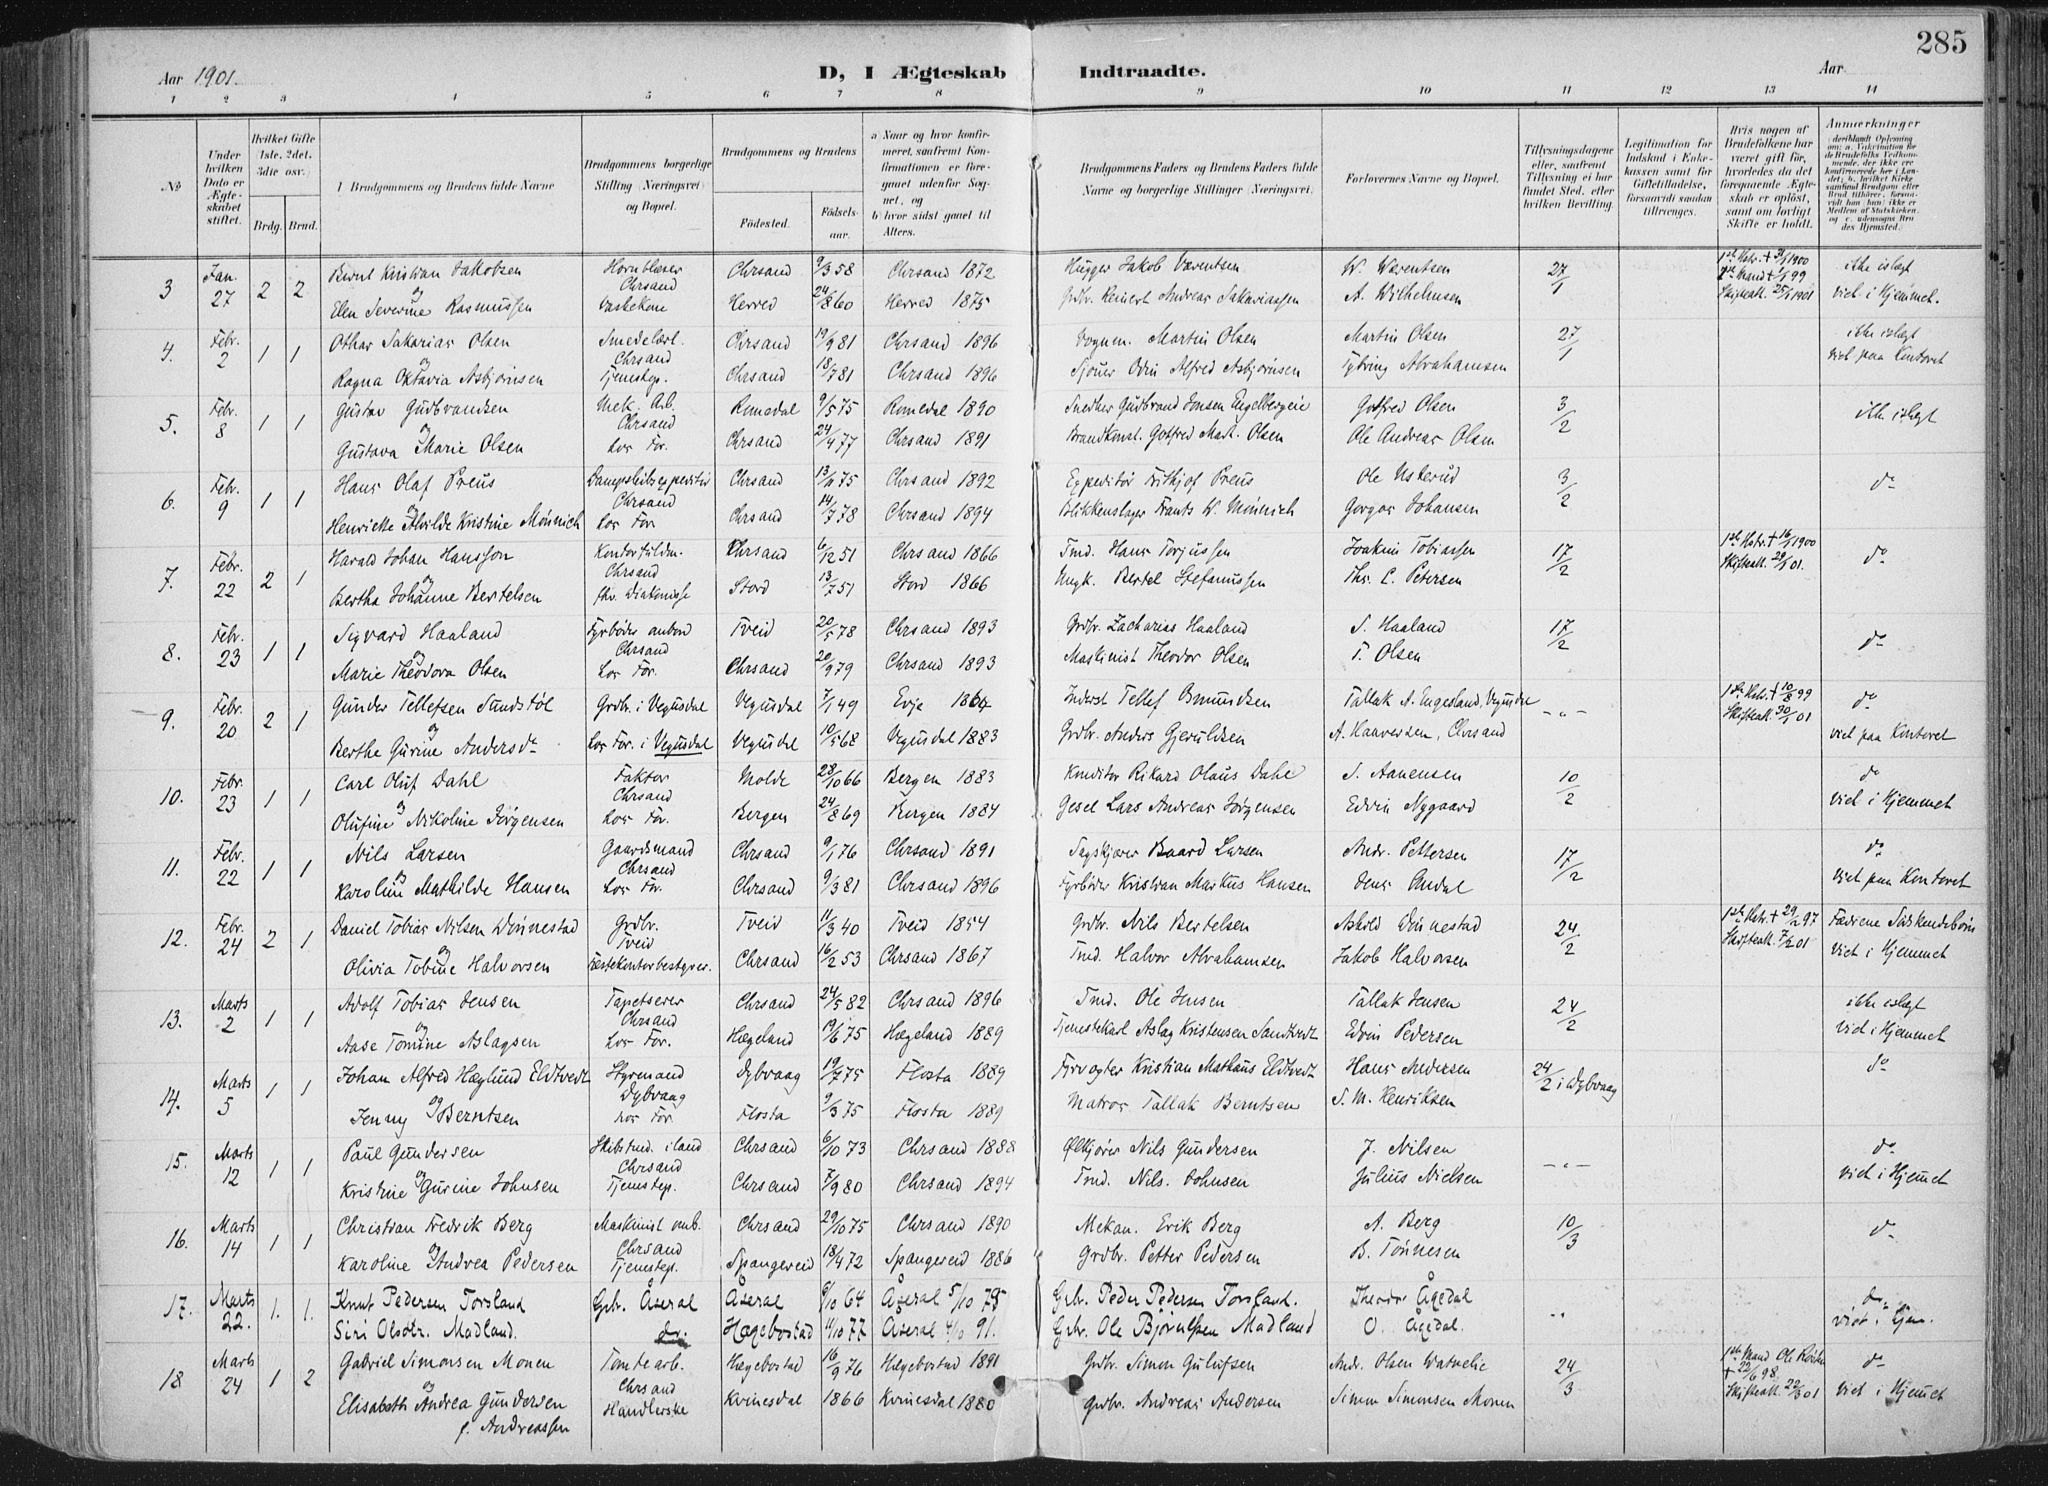 285
Aar 1901.
D, I Ægteskab Indtraadte.
Aar
1 2 3 4 5 6 7 8 9 10 11 12 13 14
№
Under hvilken Dato er Ægteskabet stiftet.
Hvilket Gifte 1ste, 2det, 3die osv.)
Brdg. Brud.
1 Brudgommens og Brudens fulde Navne
Brudgommens borgerlige Stilling (Næringsvei) og Bopæl.
Brudgommens og Brudens
Fødested.
Fødselsaar.
a Naar og hvor konfirmeret, saafremt Konfirmationen er foregaaet udenfor Sognet, og
b hvor sidst gaaet til Alters.
Brudgommens Faders og Brudens Faders fulde Navne og borgerlige Stillinger (Næringsvei).
Forlovernes Navne og Bopæl.
Tillysningsdagene eller, saafremt Tillysning ei har fundet Sted, efter hvilken Bevilling.
Legitimation for Indskud i Enkekassen samt for Giftetilladelse, forsaavidt saadan tiltrænges.
Hvis nogen af Brudefolkene har været gift før, hvorledes da det foregaaende Ægteskab er opløst, samt om lovligt Skifte er holdt.
Anmærkninger
3 Jan. 27 2 2 Bernt Kristian Jakobsen Hornblæser Chrsand Chrsand 9/3 58 Chrsand 1872 Hugger Jakob Værentsen W. Wærentsen 27/1 1ste Hstr. + 3/1 1900 ikke islegt
og Elen Severine Rasmussen Vaskekone Herred 24/8 60 Herred 1875 Grdbr. Reinert Andreas Sakariassen A. Wilhelmsen 2den Mand + 1/1 99 Skifteatt. 25/1 1901 viet i Hjemmet.
4. Febr. 2 1 1 Othar Sakarias Olsen Smedelærl. Chrsand Chrsand 19/9 81 Chrsand 1896 Vognm. Martin Olsen Martin Olsen 27/1 ikke islegt
og Ragna Oktavia Asbjørnsen Tjenestep. Chrsand 18/7 81 Chrsand 1896 Sjouer Odin Alfred Asbjørnsen Tybring Abrahamsen viet paa Kontoret
5. Febr. 8 1 1 Gustav Gudbrandsen Mek. Arb. Chrsand Romedal 9/5 75 Romedal 1890 Snedker Gudbrand Jensen Engelbergeie Gotfred Olsen 3/2 ikke islegt
og Gustava Marie Olsen hos For. Chrsand 24/4 77 Chrsand 1891 Brandkonst. Gotfred Mart. Olsen Ole Andreas Olsen
6. Febr. 9 1 1 Hans Olaf Preus Dampskibsexpeditør Chrsand Chrsand 13/11 75 Chrsand 1892 Expeditør Frithjof Preus Ole Usterud 3/2 do
og Henriette Alvilde Kristine Mønnich hos For. Chrsand 14/7 78 Chrsand 1894 Blikkenslager Frants W. Mønnich Gorgas Johansen
7. Febr. 22 2 1 Harald Johan Hansson Kontorfuldm. Chrsand Chrsand 6/12 51 Chrsand 1866 Tmd. Hans Torjussen Joakim Tobiassen 17/2 1ste Hstr. + 16/1 1900 Skifteatt. 29/1 01. do
og Bertha Johanne Bertelsen fhv. Diakonisse Stord 13/7 51 Stord 1866 Ungk. Bertel Stefanussen Ths. C. Petersen
8. Febr. 23 1 1 Sigvard Haaland Fyrbøder ombord Chrsand Tveid 20/5 78 Chrsand 1893 Grdbr. Zacharias Haaland S. Haaland 17/2 do
og Marie Theodora Olsen hos For. Chrsand 20/9 79 Chrsand 1893 Maskinist Theodor Olsen T. Olsen
9. Febr. 20 2 1 Gunder Tellefsen Sundstøl Grdbr. i Vegusdal Vegusdal 7/1 49 Evje 1864 Inderst Tellef Omundsen Tallak A. Engesland, Vegusdal - " - 1ste Hstr. + 10/8 99 Skifteatt. 30/1 01 do
og Berthe Gurine Andersdr hos For. i Vegusdal Vegusdal 10/5 68 Vegusdal 1883 Grdbr. Anders Gjeruldsen A. Haaversen, Chrsand viet paa Kontoret
10. Febr. 23 1 1 Carl Oluf Dahl Faktor Chrsand Molde 28/10 66 Bergen 1883 Konditor Rikard Olaus Dahl S. Aanensen 10/2 do
og Olufine Nikoline Jørgensen hos For. Bergen 24/8 69 Bergen 1884 Gesel Lars Andreas Jørgensen Edvin Nygaard viet i Hjemmet
11. Febr. 22 1 1 Nils Larsen Gaardsmand Chrsand Chrsand 9/1 76 Chrsand 1891 Sagskjærer Baard Larsen Andr. Pettersen 17/2 do
og Karoline Mathilde Hansen hos For. Chrsand 9/3 81 Chrsand 1896 Fyrbøder Kristian Markus Hansen Jens viet paa Kontoret
12. Febr. 24 2 1 Daniel Tobias Nilsen Dønnestad Grdbr. Tveid Tveid 11/3 40 Tveid 1854 Grdbr. Nils Bertelsen Askild Dønnestad 24/2 1ste Hstr. + 29/2 97 Skifteatt. 7/2 01 Fædrene Sødskendebørn
og Olivia Tobine Halvorsen Fæstekontorbestyrer. Chrsand 16/2 53 Chrsand 1867 Tmd. Halvor Abrahamsen Jakob Halvorsen viet i Hjemmet
13. Marts 2 1 1 Adolf Tobias Jensen Tapetserer Chrsand Chrsand 24/5 82 Chrsand 1896 Tmd. Ole Jensen Tallak Jensen 24/2 ikke islegt
og Aase Tomine Aslagsen hos For. Hægeland 19/6 75 Hægeland 1889 Tjenestekarl Aslag Kristensen Sandtvedt Edvin Pedersen viet i Hjemmet
14. Marts 5 1 1 Johan Alfred Hæglund Eldtvedt Styrmand Dybvaag Dybvaag 19/7 75 Flosta 1889 Fyrvogter Kristian Mathæus Eldtvedt Hans Andersen 24/2 i Dybvaag do
og Jenny Berntsen hos For. Flosta 9/3 75 Flosta 1889 Matros Tallak Berntsen S. M. Henriksen
15. Marts 12 1 1 Paul Gundersen Skibstmd. iland Chrsand Chrsand 6/10 73 Chrsand 1888 Ølkjører Nils Gundersen J. Nilsen - " - do
og Kristine Gurine Johnsen Tjenestep. Chrsand 7/9 80 Chrsand 1894 Tmd. Nils. Johnsen Julius Nielsen viet i Hjemmet
16. Marts 14 1 1 Christian Fredrik Berg Maskinist omb. Chrsand Chrsand 29/10 75 Chrsand 1890 Mekan. Erik Berg A. Berg 10/3 do
og Karoline Andrea Pedersen Tjenestep. Spangereid 18/4 72 Spangereid 1886 Grdbr. Petter Pedersen B. Tønnesen
17. Marts 22. 1. 1. Knut Pedersen Torsland Gbr. Åseral Åseral 6/10 64 Åseral 5/10 79 Gbr. Peder Pedersen Torsland. Theodor Ågedal " do.
Siri Olsdtr. Madland. do. Hægebostad 11/10 77 Åseral 4/10 91. Gbr. Ole Bjørulfsen Madland O. Ågedal. viet i Hjem.
18 Marts 24 1 2 Gabriel Simonsen Monen Tomtearb. Chrsand Hægebostad 16/9 76 Hægebostad 1891 Grdbr. Simon Gulufsen Andr. Olsen Watnelie 24/3 1ste Mand Ole + 22/6 98. Skifteatt. 22/3 01 do
og Elisabeth Andrea Gundersen f. Andreassen Handlerske Kvinesdal 1866 Kvinesdal 1880 Grdbr. Andreas Andersen Simon Simonsen Monen viet i Hjemmet